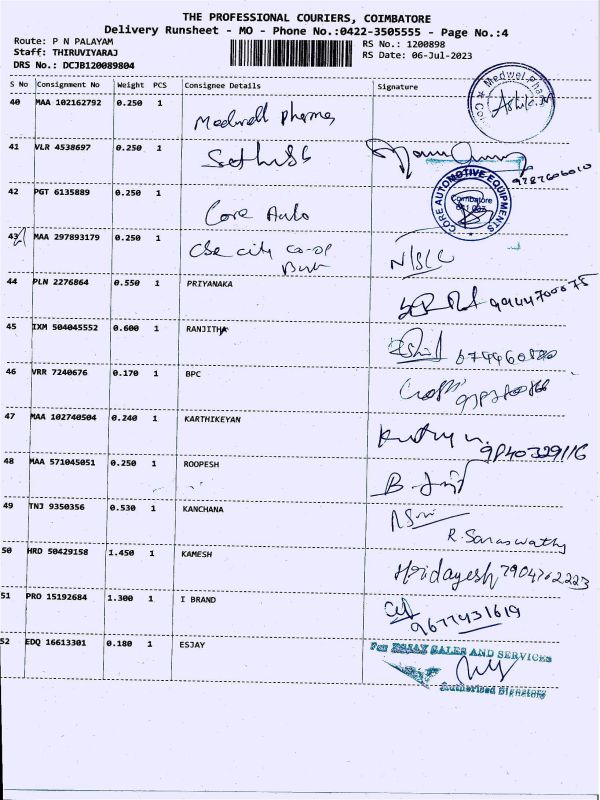 THE PROFESSIONAL COURIERS, COIMBATORE
Delivery Runsheet - MO - Phone No.:0422-3505555 - Page No.:4
Route: P N PALAYAM
Staff: THIRUVIYARAJ
DRS No.: DCJB120089804
RS No.: 1200898
RS Date: 06-Jul-2023
S No Consignment No Weight PCS Consignee Details Signature
40 MAA 102162792 0.250 1 Medwell Pharma
41 VLR 4538697 0.250 1
9787606010
42 PGT 6135889 0.250 1 Core Auto
CORE AUTOMOTIVE EQUIPMENTS
Coimbatore
43 MAA 297893179 0.250 1 Cbe city co-op
Bank
44 PLN 2276864 0.550 1 PRIYANAKA
9944700075
45 IXM 504045552 0.600 1 RANJITHA
46 VRR 7240676 0.170 1 BPC
47 MAA 102740504 0.240 1 KARTHIKEYAN
9840329116
48 MAA 571045051 0.250 1 ROOPESH
49 TNJ 9350356 0.530 1 KANCHANA
R. Saraswathy
50 HRD 50429158 1.450 1 KAMESH
Hridayesh 7904762223
51 PRO 15192684 1.300 1 I BRAND
9677431619
52 EDQ 16613301 0.180 1 ESJAY
For ESJAY SALES AND SERVICES
Authorised Signatory